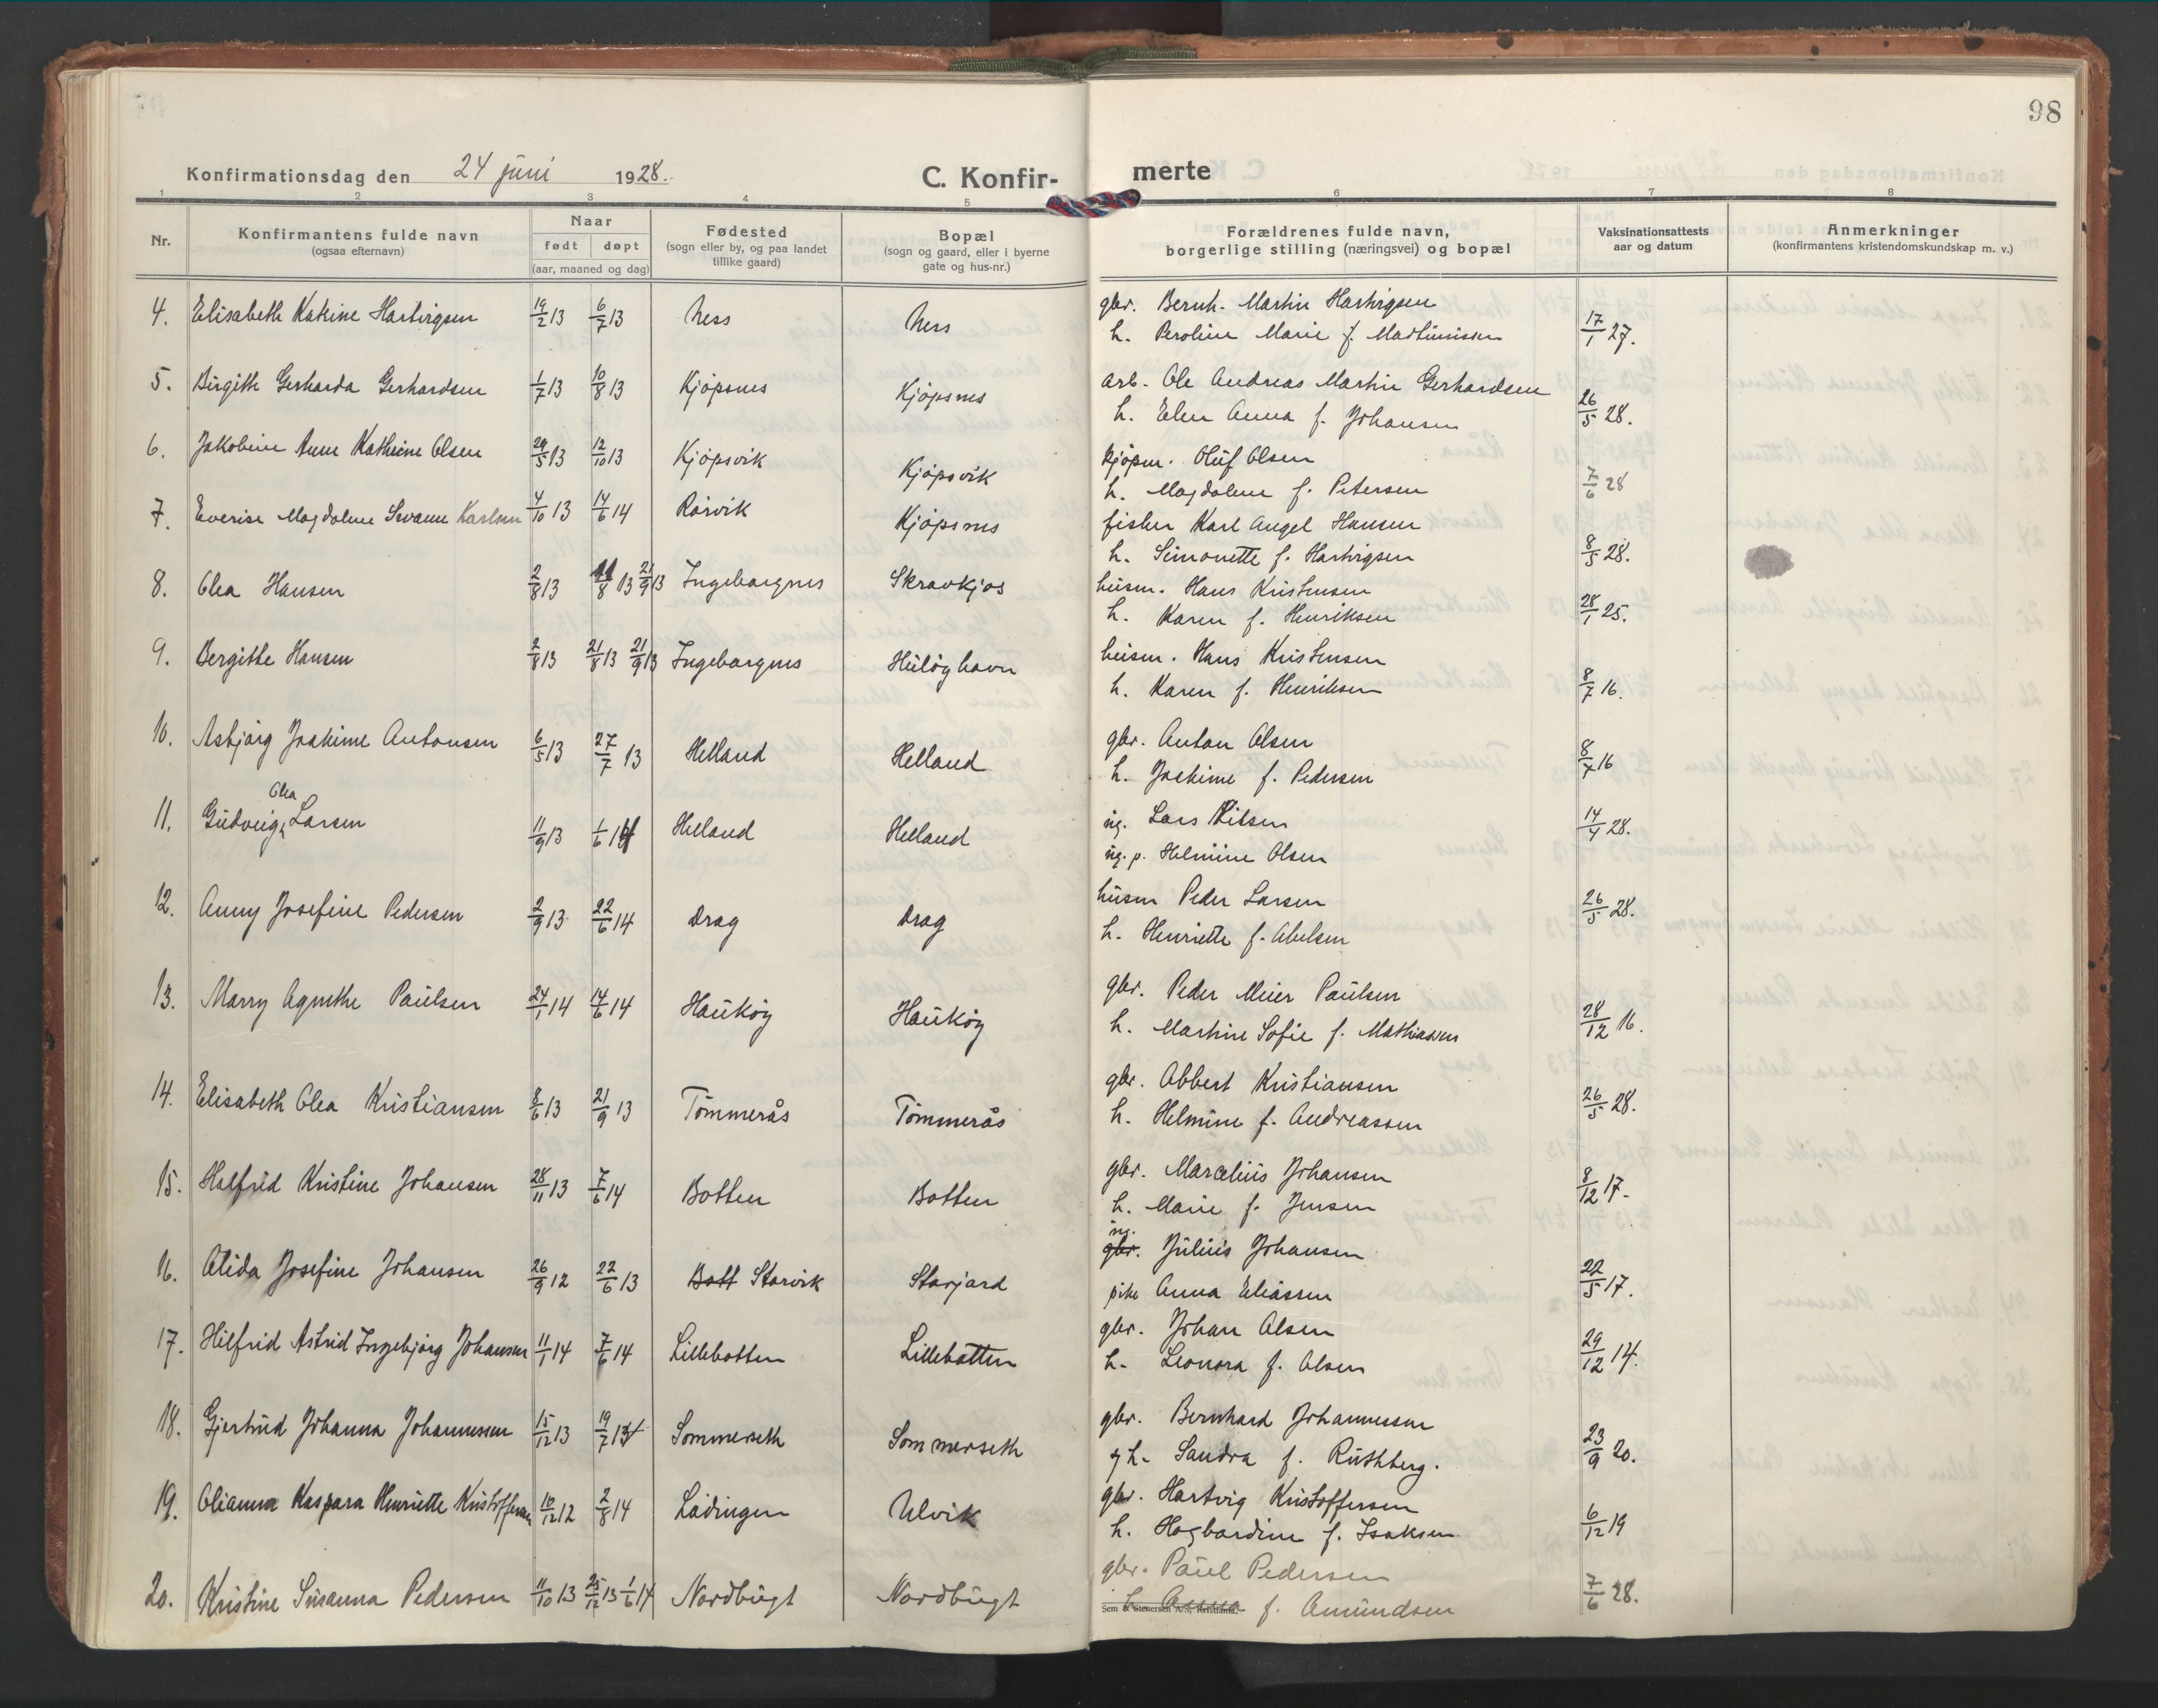 98
Konfirmationsdag den 24 juni 1928.
C. Konfir-
merte
1 2 3 4 5 6 7 8
Nr.
Konfirmantens fulde navn
(ogsaa efternavn)
Naar
født døpt
(aar, maaned og dag)
Fødested
(sogn eller by, og paa landet
tillike gaard)
Bopæl
(sogn og gaard, eller i byerne
gate og hus-nr.)
Forældrenes fulde navn,
borgerlige stilling (næringsvei) og bopæl
Vaksinationsattests
aar og datum
Anmerkninger
(konfirmantens kristendomskundskap m. v.)
4. Elisabeth Katrine Hartvigsen 19/2 13 6/7 13 Ness Ness gbr. Bernh. Martin Hartvigsen
h. Peroline Marie f. Martinussen 17/1 27.
5. Birgith Gerharda Gerhardsen 1/7 13 10/8 13 Kjöpsnes Kjöpsnes arb. Ole Andreas Martin Gerhardsen
h. Elen Anna f. Johansen 26/5 28.
6. Jakobine Anne Kathrine Olsen 29/5 13 12/10 13 Kjöpsvik Kjöpsvik kjöpm. Oluf Olsen
h. Magdalene f. Petersen 7/6 28
7. Everise Magdalene Svanne Karlsen 4/10 13 14/6 14 Rörvik Kjöpsnes fisker Karl Angel Hansen
h. Simonette f. Hartvigsen 8/5 28.
8. Olea Hansen 2/8 13 21/8 13 21/9 13 Ingeborgnes Skrovkjos husm. Hans Kristensen
h. Karen f. Henriksen 28/1 25.
9. Bergitte Hansen 2/8 13 21/8 13 21/9 13 Ingeborgnes Hulöyhavn husm. Hans Kristensen
h. Karen f. Henriksen 8/7 16.
10. Asbjörg Joakime Antonsen 6/5 13 27/7 13 Helland Helland gbr. Anton Olsen
h. Joakime f. Pedersen 8/7 16
Olea
11. Gudveig Larsen 11/9 13 1/6 14 Helland Helland ug. Lars Nilsen
ug. p. Helmine Olsen 14/4 28.
12. Anny Josefine Pedersen 2/9 13 22/6 14 Drag Drag husm Peder Larsen
h. Henriette f. Abelsen 26/5 28.
13. Marry Agnethe Paulsen 24/1 14 14/6 14 Hauköy Hauköy gbr. Peder Meier Paulsen
h. Martine Sofie f. Mathiassen 28/12 16.
14. Elisabeth Olea Kristiansen 8/6 13 21/9 13 Tömmerås Tömmerås gbr. Abbert Kristiansen
h. Helmine f. Andreassen 26/5 28.
15. Halfrid Kristine Johansen 28/11 13 7/6 14 Botten Botten gbr. Marcelius Johansen
h. Marie f. Jensen 8/12 17.
ug.
16. Alida Josefine Johansen 26/9 12 22/6 13 Bott Storvik Storjord gbr. Julius Johansen
pike Anna Eliassen 22/5 17.
17. Hilfrid Astrid Ingebjörg Johansen 11/1 14 7/6 14 Lillebotten Lillebotten gbr. Johan Olsen
h. Leonora f. Olsen 29/12 14.
18. Gjertrud Johanna Johannessen 15/12 13 19/7 14 Sommerseth Sommerseth gbr. Bernhard Johannessen
g h. Sandra f. Ruthberg. 23/9 20.
19. Olianna Kaspara Henriette Kristoffersen 10/12 12 2/8 14 Lödingen Ulvik gbr. Hartvig Kristoffersen
h. Hagbardine f. Isaksen 6/12 19
20. Kristine Susanna Pedersen 11/10 13 25/12 13 1/6 14 Nordbugt Nordbugt gbr. Paul Pedersen
h. Anna f. Amundsen 7/6 28.
Sem & Stenersen A/S, Kristiania.